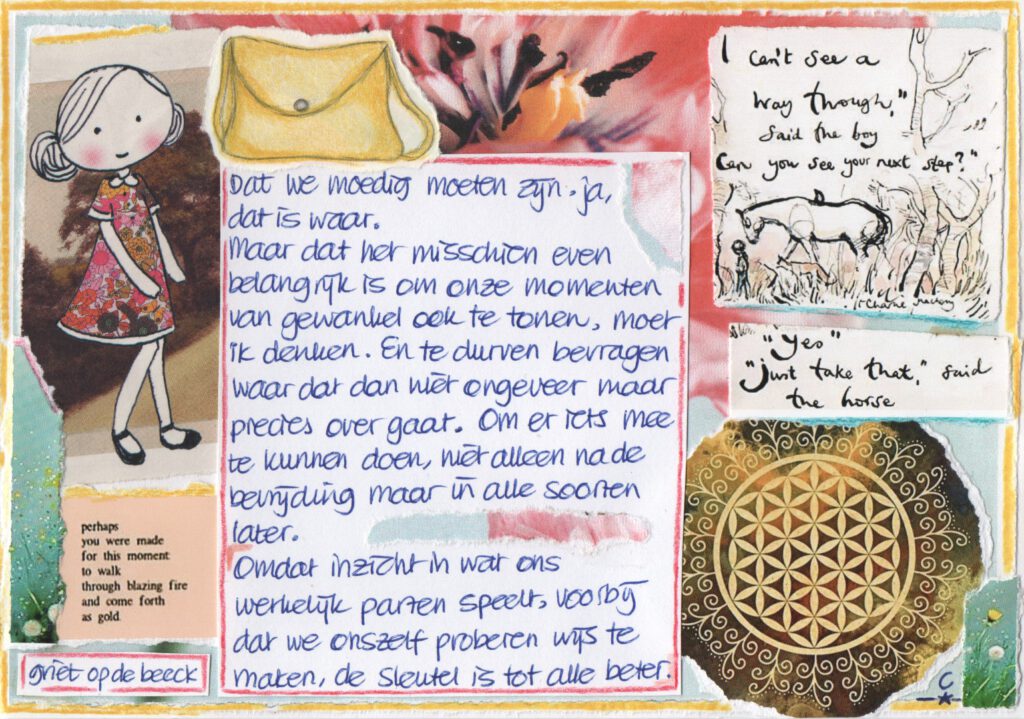 Dat we moedig moeten zijn, ja,
dat is waar.
Maar dat het misschien even
belangrijk is om onze momenten
van gewankel ook te tonen, moet
ik denken. En te durven bevragen
waar dat dan niet ongeveer maar
precies over gaat. Om er iets mee
te kunnen doen, niet alleen na de
bevrijding maar in alle soorten
later.
Omdat inzicht in wat ons
werkelijk parten speelt, voorbij
dat we onszelf proberen wijs te
maken, de sleutel is tot alle beter.
griet op de beeck
perhaps
you were made
for this moment
to walk
through blazing fire
and come forth
as gold.
I can't see a
way through,"
said the boy
Can you see your next step?"
Charlie Mackesy
"Yes"
"Just take that," said
the horse
C